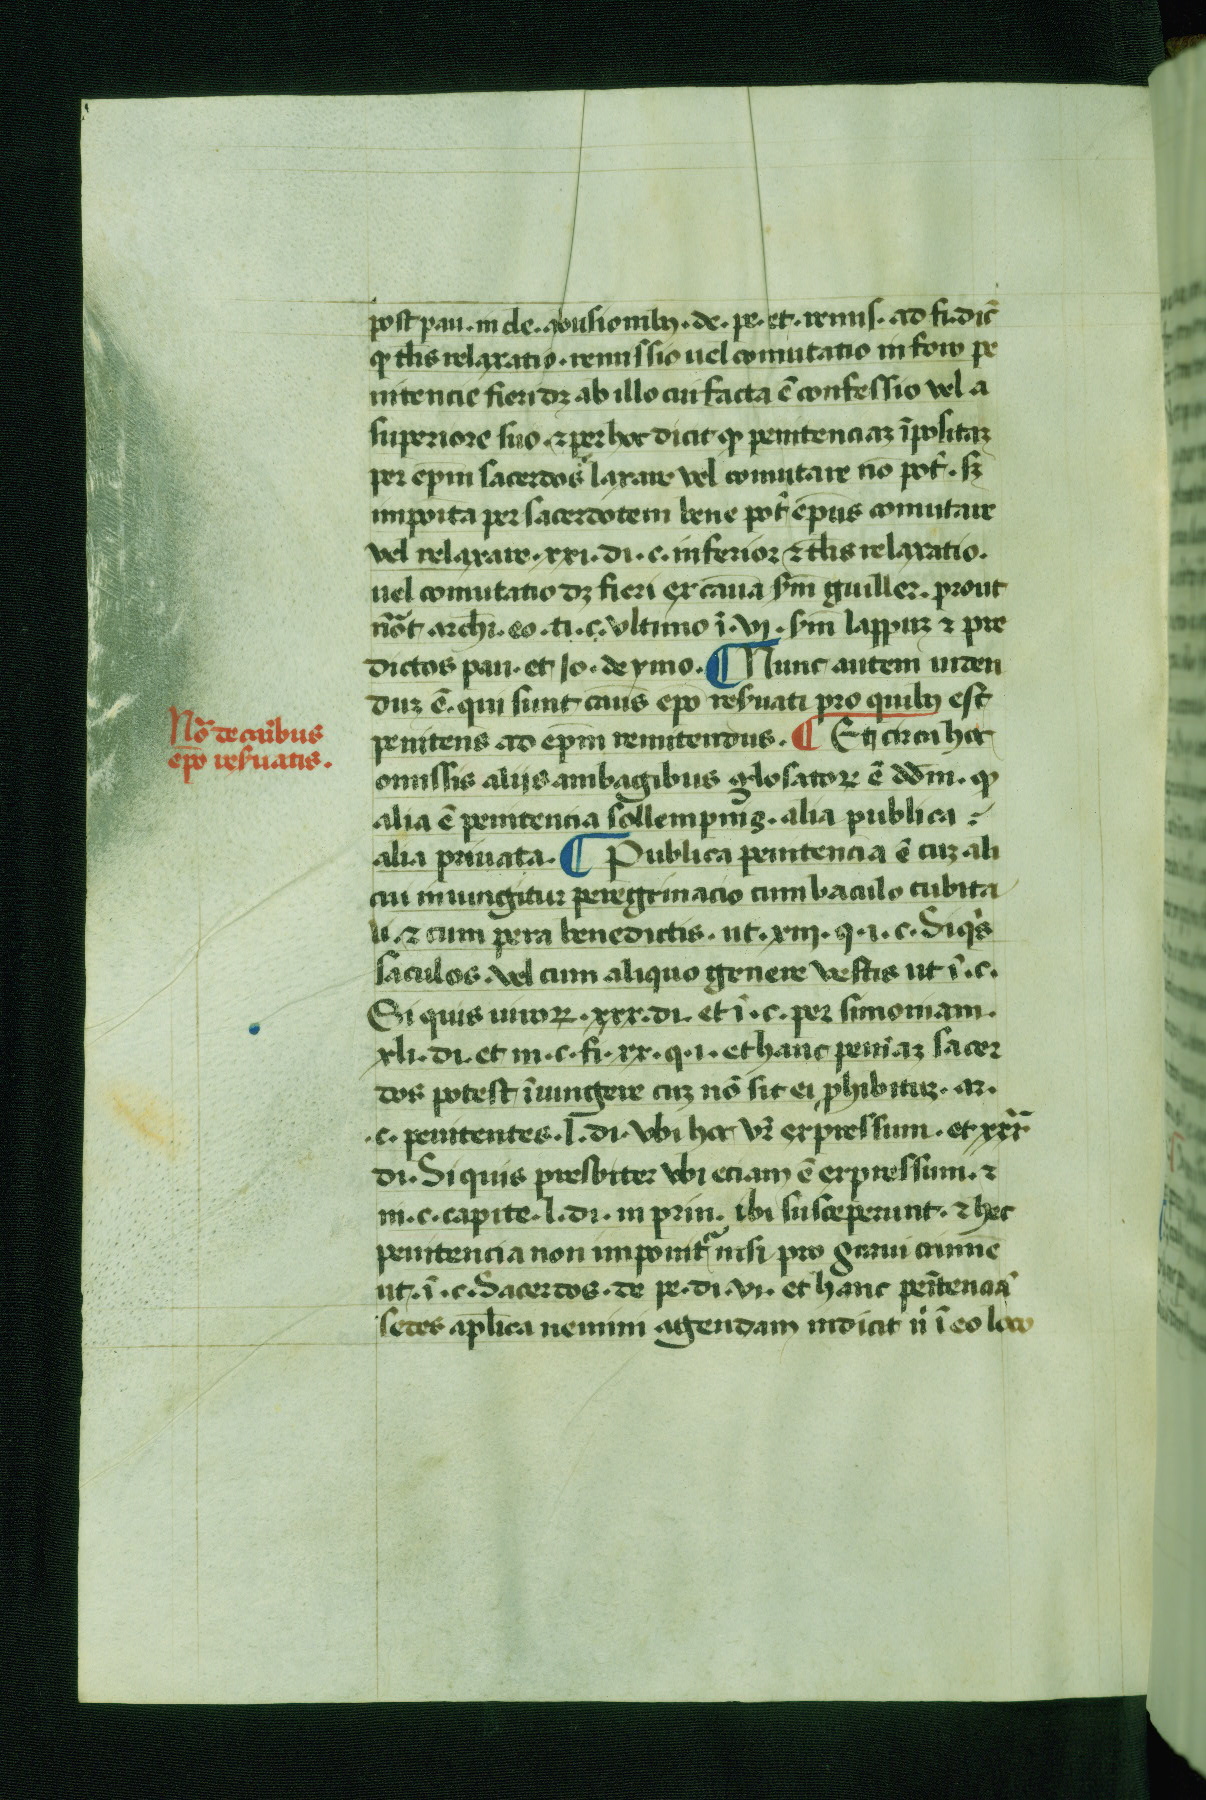 post pau. in cle. abusionibꝫ. de. pe. et. remis. ad fi. dic̄
ꝙ tl̄is relaxatio. remissio uel comutatio in foro pe
nitencie fieri dꝫ ab illo cui facta ē confessio vel a
superiore suo. ⁊ per hoc dicit ꝙ penitenciaꝫ īpositaꝫ
per epm̄ sacerdos laxare vel comutare nō pot̄. sꝫ
imposita per sacerdotem bene pot̄ ep̄us comutare
vel relaxare. xxi. di. c. inferior ⁊ tl̄is relaxatio.
uel comutatio dꝫ fieri ex cāusa sm̄ guiller. prout
nōt archi. eo. ti. c. vltimo ī. vj. sm̄ lappuꝫ ⁊ pre
dictos pau. et jo. de ymo. ¶ Nunc autem viden
duꝫ ē. qui sunt casus ep̄o resuati pro quibꝫ est
penitens ad ep̄m remitendus. ¶ Et circa hoc
omissis alijs ambagibus glosatoꝝ ē dd̄m. ꝙ
alia ē penitencia sollempnis. alia publica
alia priuata. ¶ Publica penitencia ē cuꝫ ali
cui iniungitur peregrinacio cum baculo cubita
li. ⁊ cum pera benedictis. ut. xiij. q. i. c. Si qͥs
saculos. vel cum aliquo genere vestis ut ī. c.
Si quis uxoꝝ. xxx. di. et ī. c. per simoniam.
xli. di. et in. c. fi. xx. q. i. et hanc penīaꝫ sacer
dos potest īiungere cuꝫ nō sit ei phibituꝫ. ar.
.c. penitentes. l. di. vbi hoc vr̄ expressum. et xxx
di. Si quis presbiter vbi eciam ē expressum. ⁊
in. c. capite. l. di. in prin. ibi susceperunt. ⁊ hec
penitencia non imponit̄ nisi pro graui crimīe
ut. ī. c. Sacerdos. de pe. di. vi. et hanc penītenciā
sedes aplica nemini agendam indicit n̄ ī eo loco
Nō de casibus
ep̄o resuatis.